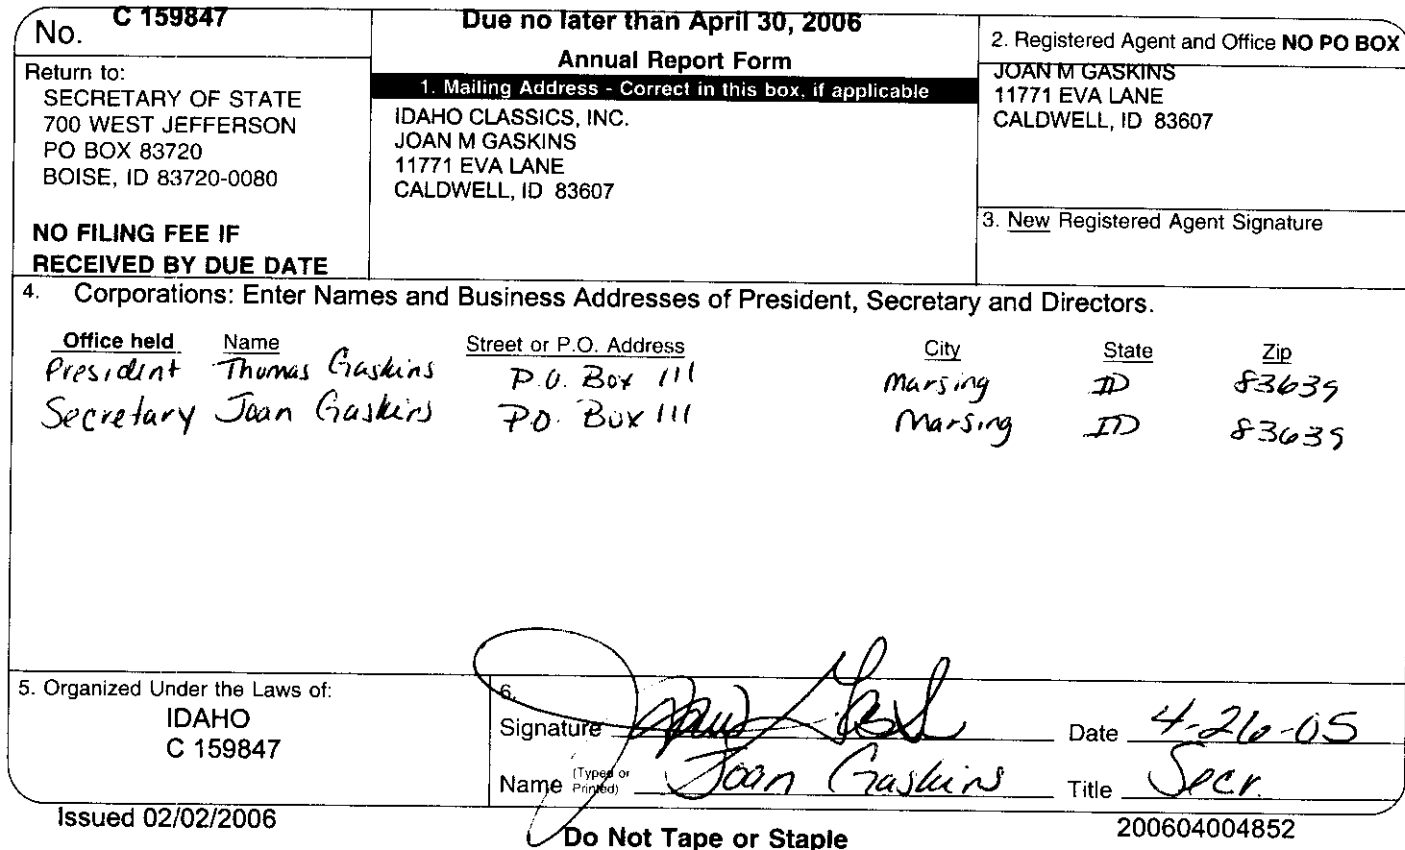 No. C 159847
Return to:
SECRETARY OF STATE
700 WEST JEFFERSON
PO BOX 83720
BOISE, ID 83720-0080
NO FILING FEE IF
RECEIVED BY DUE DATE
Due no later than April 30, 2006
Annual Report Form
1. Mailing Address - Correct in this box, if applicable
IDAHO CLASSICS, INC.
JOAN M GASKINS
11771 EVA LANE
CALDWELL, ID 83607
2. Registered Agent and Office NO PO BOX
JOAN M GASKINS
11771 EVA LANE
CALDWELL, ID 83607
3. New Registered Agent Signature
4. Corporations: Enter Names and Business Addresses of President, Secretary and Directors.
Office held Name Street or P.O. Address City State Zip
President Thomas Gaskins P.O. Box 111 Marsing ID 83639
Secretary Joan Gaskins P.O. Box 111 Marsing ID 83639
5. Organized Under the Laws of:
IDAHO
C 159847
6.
Signature Date 4-26-05
Name (Typed or Printed) Joan Gaskins Title Secr.
Issued 02/02/2006
Do Not Tape or Staple
200604004852